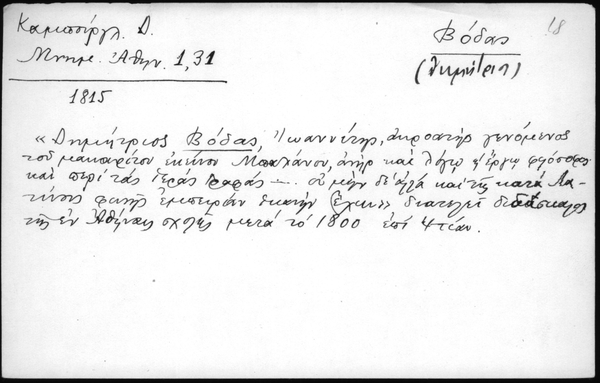 Καμπούργλ. Δ.
Μνημ. Ἀθην. 1,31
1815
18
Βόδας
(Δημήτριος)
«Δημήτριος Βόδας, Ἰωαννίτης, ἀκροατὴς γενόμενος
τοῦ μακαρίτου ἐκείνου Μπαλάνου, ἀνὴρ καὶ λόγῳ κ' ἔργῳ φιλόσοφος
καὶ περὶ τὰς Ἱερὰς — οὐ μὴν δὲ ἀλλὰ καὶ τῆς κατὰ Λα-
τίνους φωνῆς ἐμπειρίαν ἱκανὴν ἔχων» διατελεῖ διδάσκαλος
τῆς ἐν Ἀθήναις σχολῆς μετὰ τὸ 1800 ἐπὶ